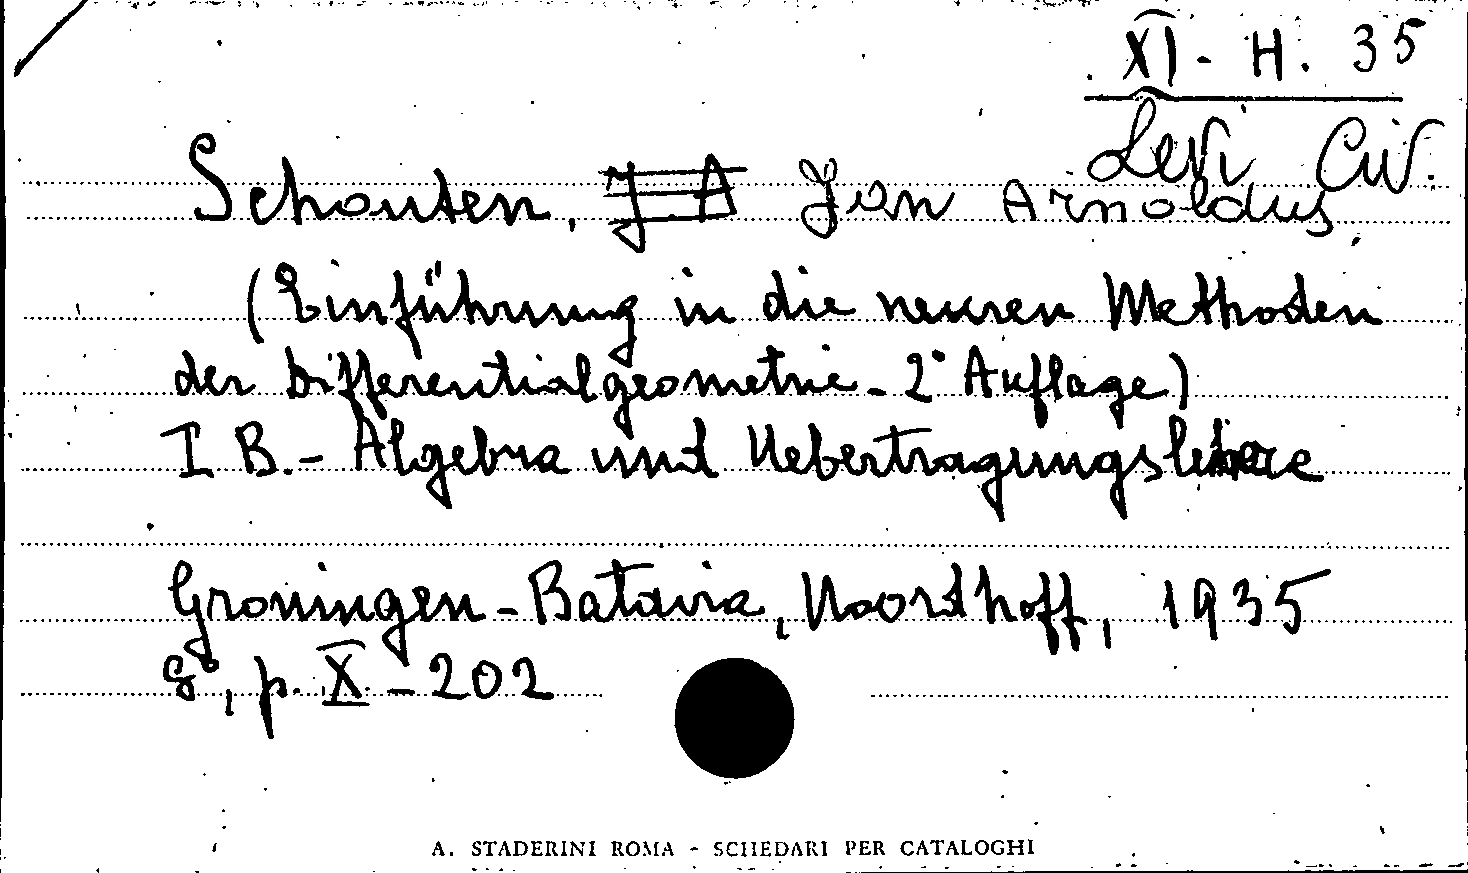 XI - H. 35
Levi Civ.
Schouten, J A Jan Arnoldus
(Einführung in die neueren Methoden
der Differentialgeometrie - 2° Auflage)
I B. - Algebra und Uebertragungslehere
Groningen - Batavia, Noordhoff, 1935
8°, p. X - 202
A. STADERINI ROMA - SCHEDARI PER CATALOGHI